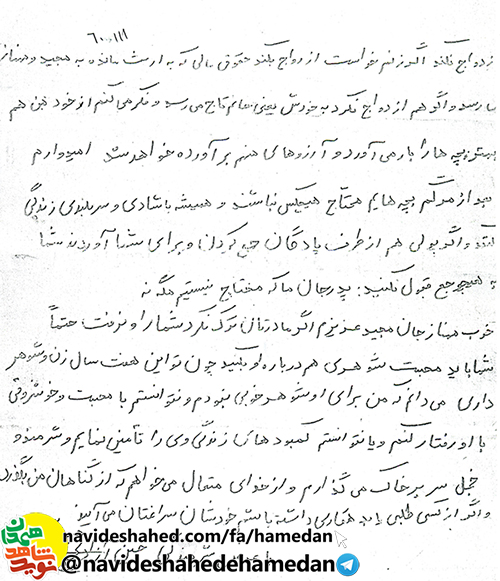 ۶۰،۱۱۱
ازدواج نکند اگر زنم خواست ازدواج بکند حقوق مالی که به ارث مانده به مجید و مهناز
برسد و اگر هم ازدواج نکرد به خودش یعنی خانم تاج می رسد و فکر می کنم از خود من هم
بهتر بچه ها را بار می آورد و آرزوهای منهم برآورده خواهد شد امیدوارم
بعد از مرگم بچه هایم محتاج هیچکس نباشند و همیشه با شادی و سربلندی زندگی
کنند و اگر پولی هم از طرف پادگان جمع کردند و برای شما آوردند شما
به هیچ وجه قبول نکنید: پدرجان ما که محتاج نیستیم مگه نه
خوب مهناز جان مجید عزیزم اگر مادرتان ترک نکرد شما را و نرفت حتماً
شما باید محبت شوهری هم درباره او بکنید چون تو این هفت سال زن و شوهر
داری می دانم که من برای او شوهر خوبی نبودم و نتوانستم با محبت و خوشروئی
با او رفتار کنم و یا نتوانستم کمبودهای زندگی وی را تأمین نمایم و شرمنده و
خجل سر بر خاک می گذارم و از خدای متعال می خواهم که از گناهان من بگذرد
و اگر از کسی طلبی یا بدهکاری داشته باشم خودشان سراغتان می آیند
navideshahed.com/fa/hamedan
@navideshahedehamedan
نوید شاهد همدان